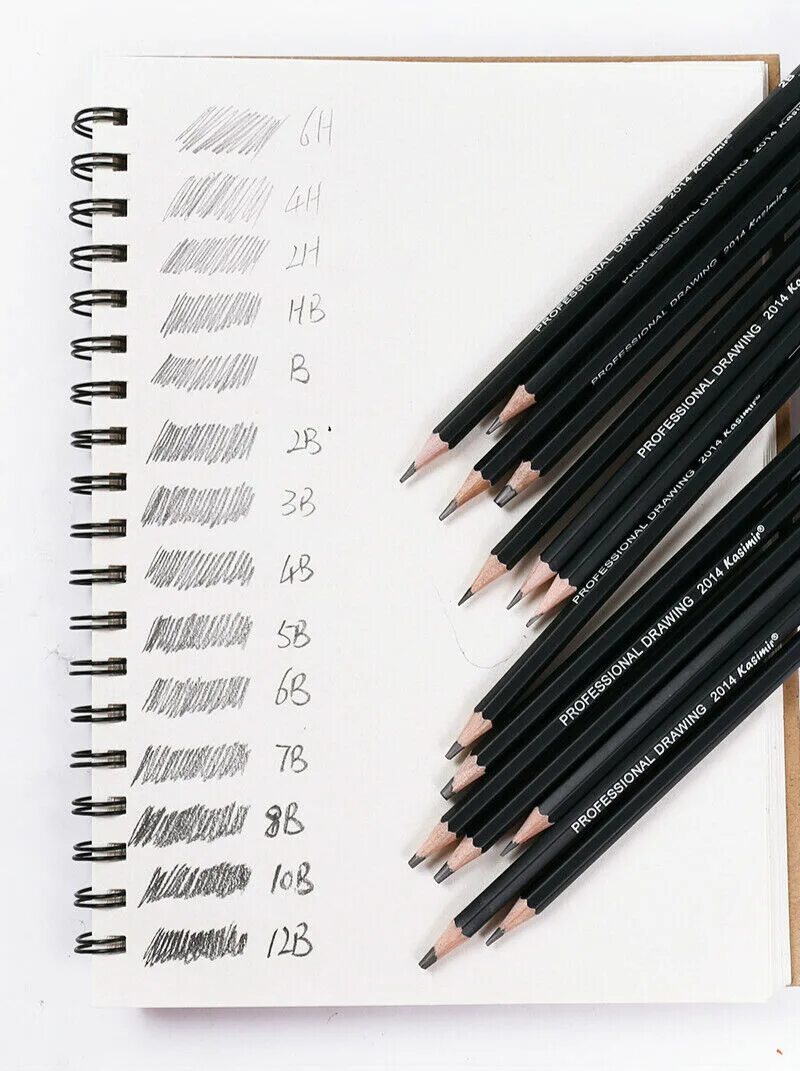 6H
4H
2H
HB
B
2B
3B
4B
5B
6B
7B
8B
10B
12B
PROFESSIONAL DRAWING 2014 Kasimir®
PROFESSIONAL DRAWING 2014 Kas
PROFESSIONAL DRAWING 2014 Kasimir®
PROFESSIONAL DRAWING 2014 Kas
PROFESSIONAL DRAWING 2014 Kasimir®
PROFESSIONAL DRAWING 2014 Kasimir®
PROFESSIONAL DRAWING 2014 Kasimir®